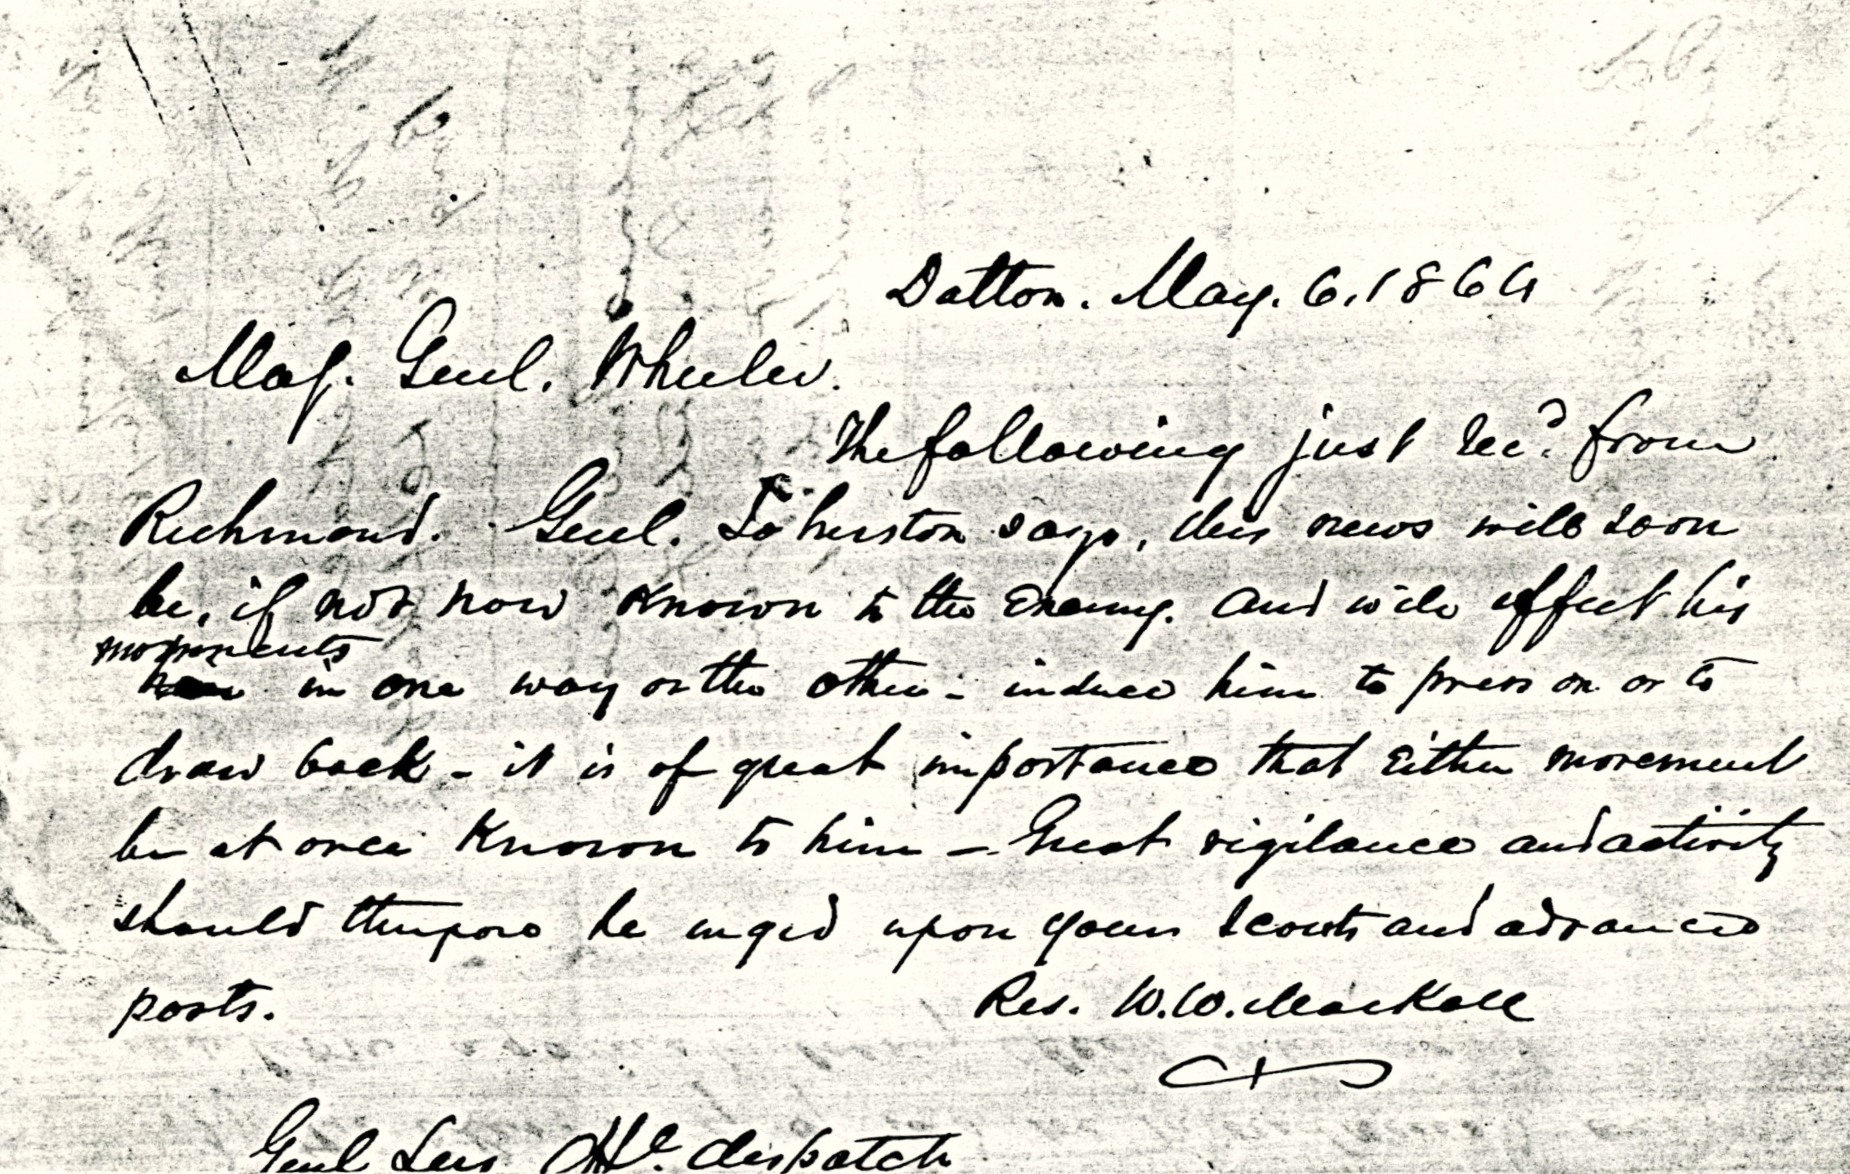 Dalton. May. 6, 1864
Maj. Genl. Wheeler.
The following just recd. from
Richmond. Genl. Johnston says, this news will soon
be, if not now known to the Enemy. and will effect his
movements
in one way or the other - induce him to press on or to
draw back - it is of great importance that Either movement
be at once Known to him - Great vigilance and activity
should therefore be urged upon your scouts and advanced
posts.
Res. W. W. Mackall
Genl Lees Off. dispatch